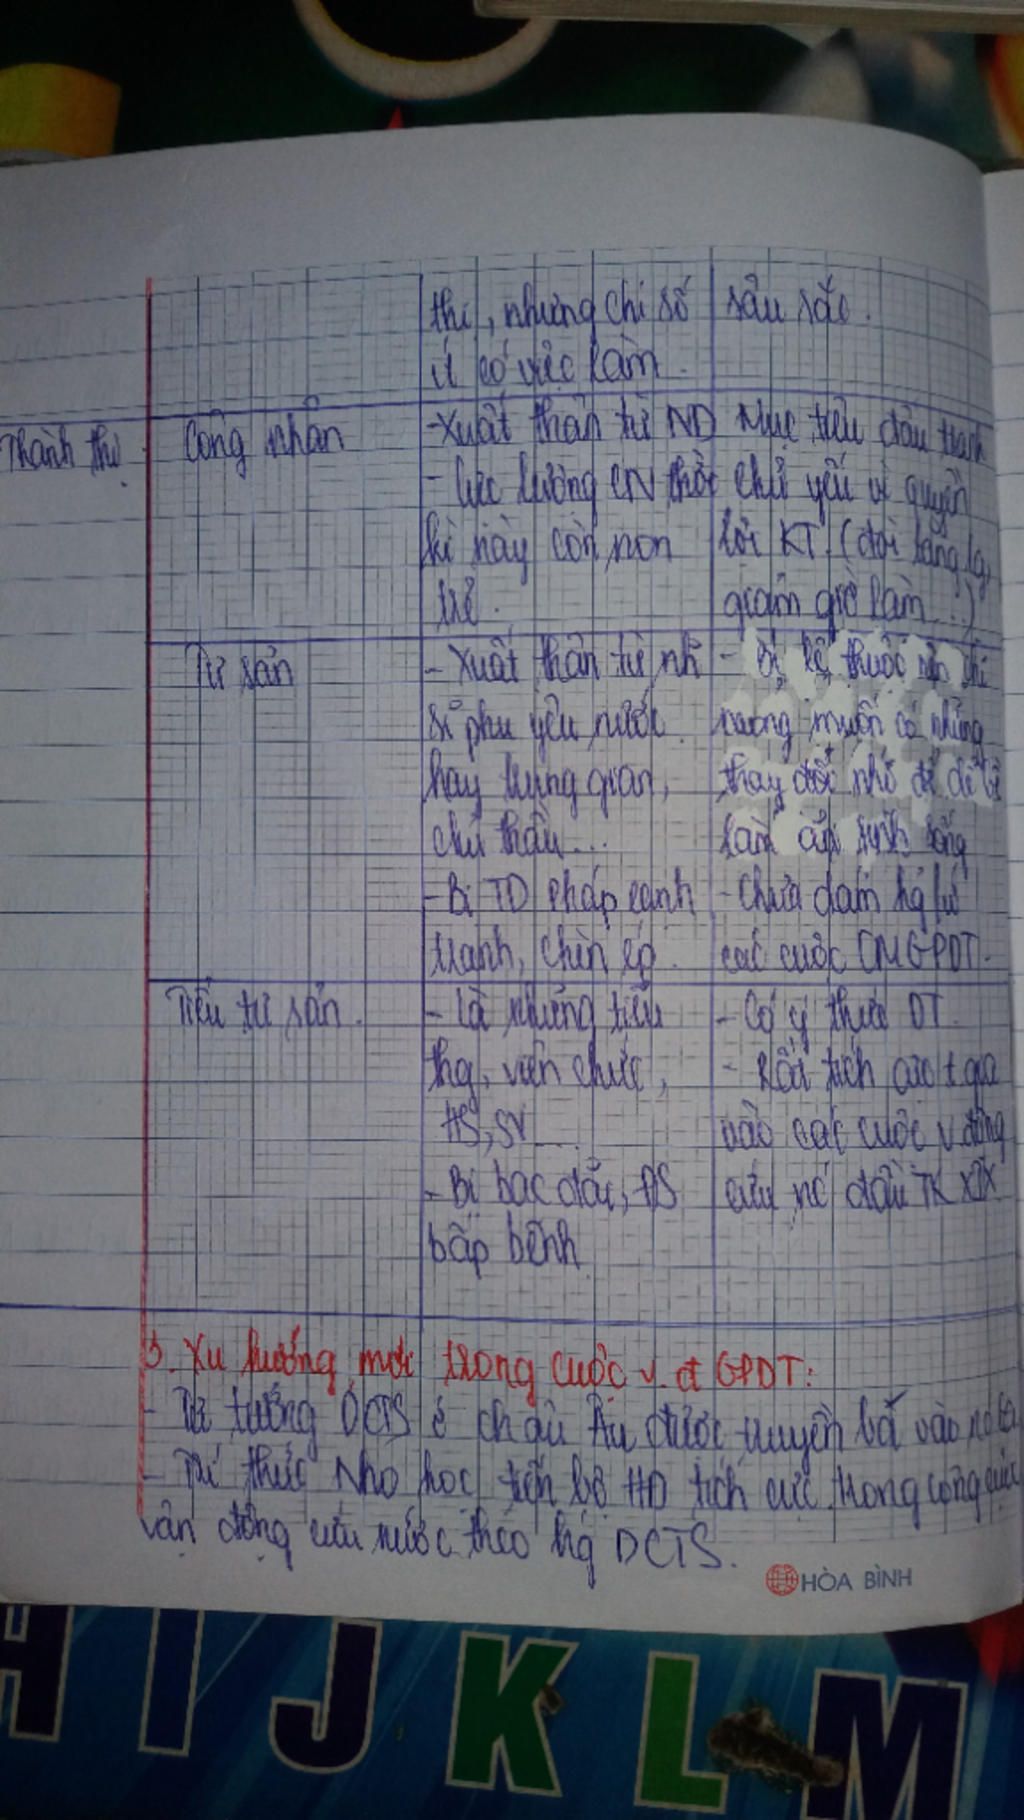 thị, nhưng chỉ số
ít có việc làm.
sâu sắc.
Thành thị
Công nhân
- Xuất thân từ ND
- Lực lượng CN thời
kì này còn non
trẻ.
Mục tiêu đấu tranh
chủ yếu vì quyền
lợi KT (đòi tăng lg,
giảm giờ làm...)
Tư sản
- Xuất thân từ nh
sĩ phu yêu nước
hay trung gian,
chủ thầu...
- Bị TD Pháp cạnh
tranh, chèn ép.
- Bị lệ thuộc nên chỉ
muốn có những
thay đổi nhỏ để dễ bề
làm ăn, sinh sống
- Chưa dám hg ứ
các cuộc CMGPDT.
Tiểu tư sản.
- Là những tiểu
thg, viên chức,
HS, SV...
- Bị bạc đãi, ĐS
bấp bênh
- Có ý thức DT.
- Rất tích cực t. gia
vào các cuộc v. động
cứu nc đầu TK XIX
3. Xu hướng mới trong cuộc v. đ GPDT:
- Tư tưởng DCTS ở châu Âu được truyền bá vào nc ta
- Trí thức Nho học tiến bộ HĐ tích cực trong công cuộc
vận động cứu nước theo hg DCTS.
HÒA BÌNH
H I J K L M